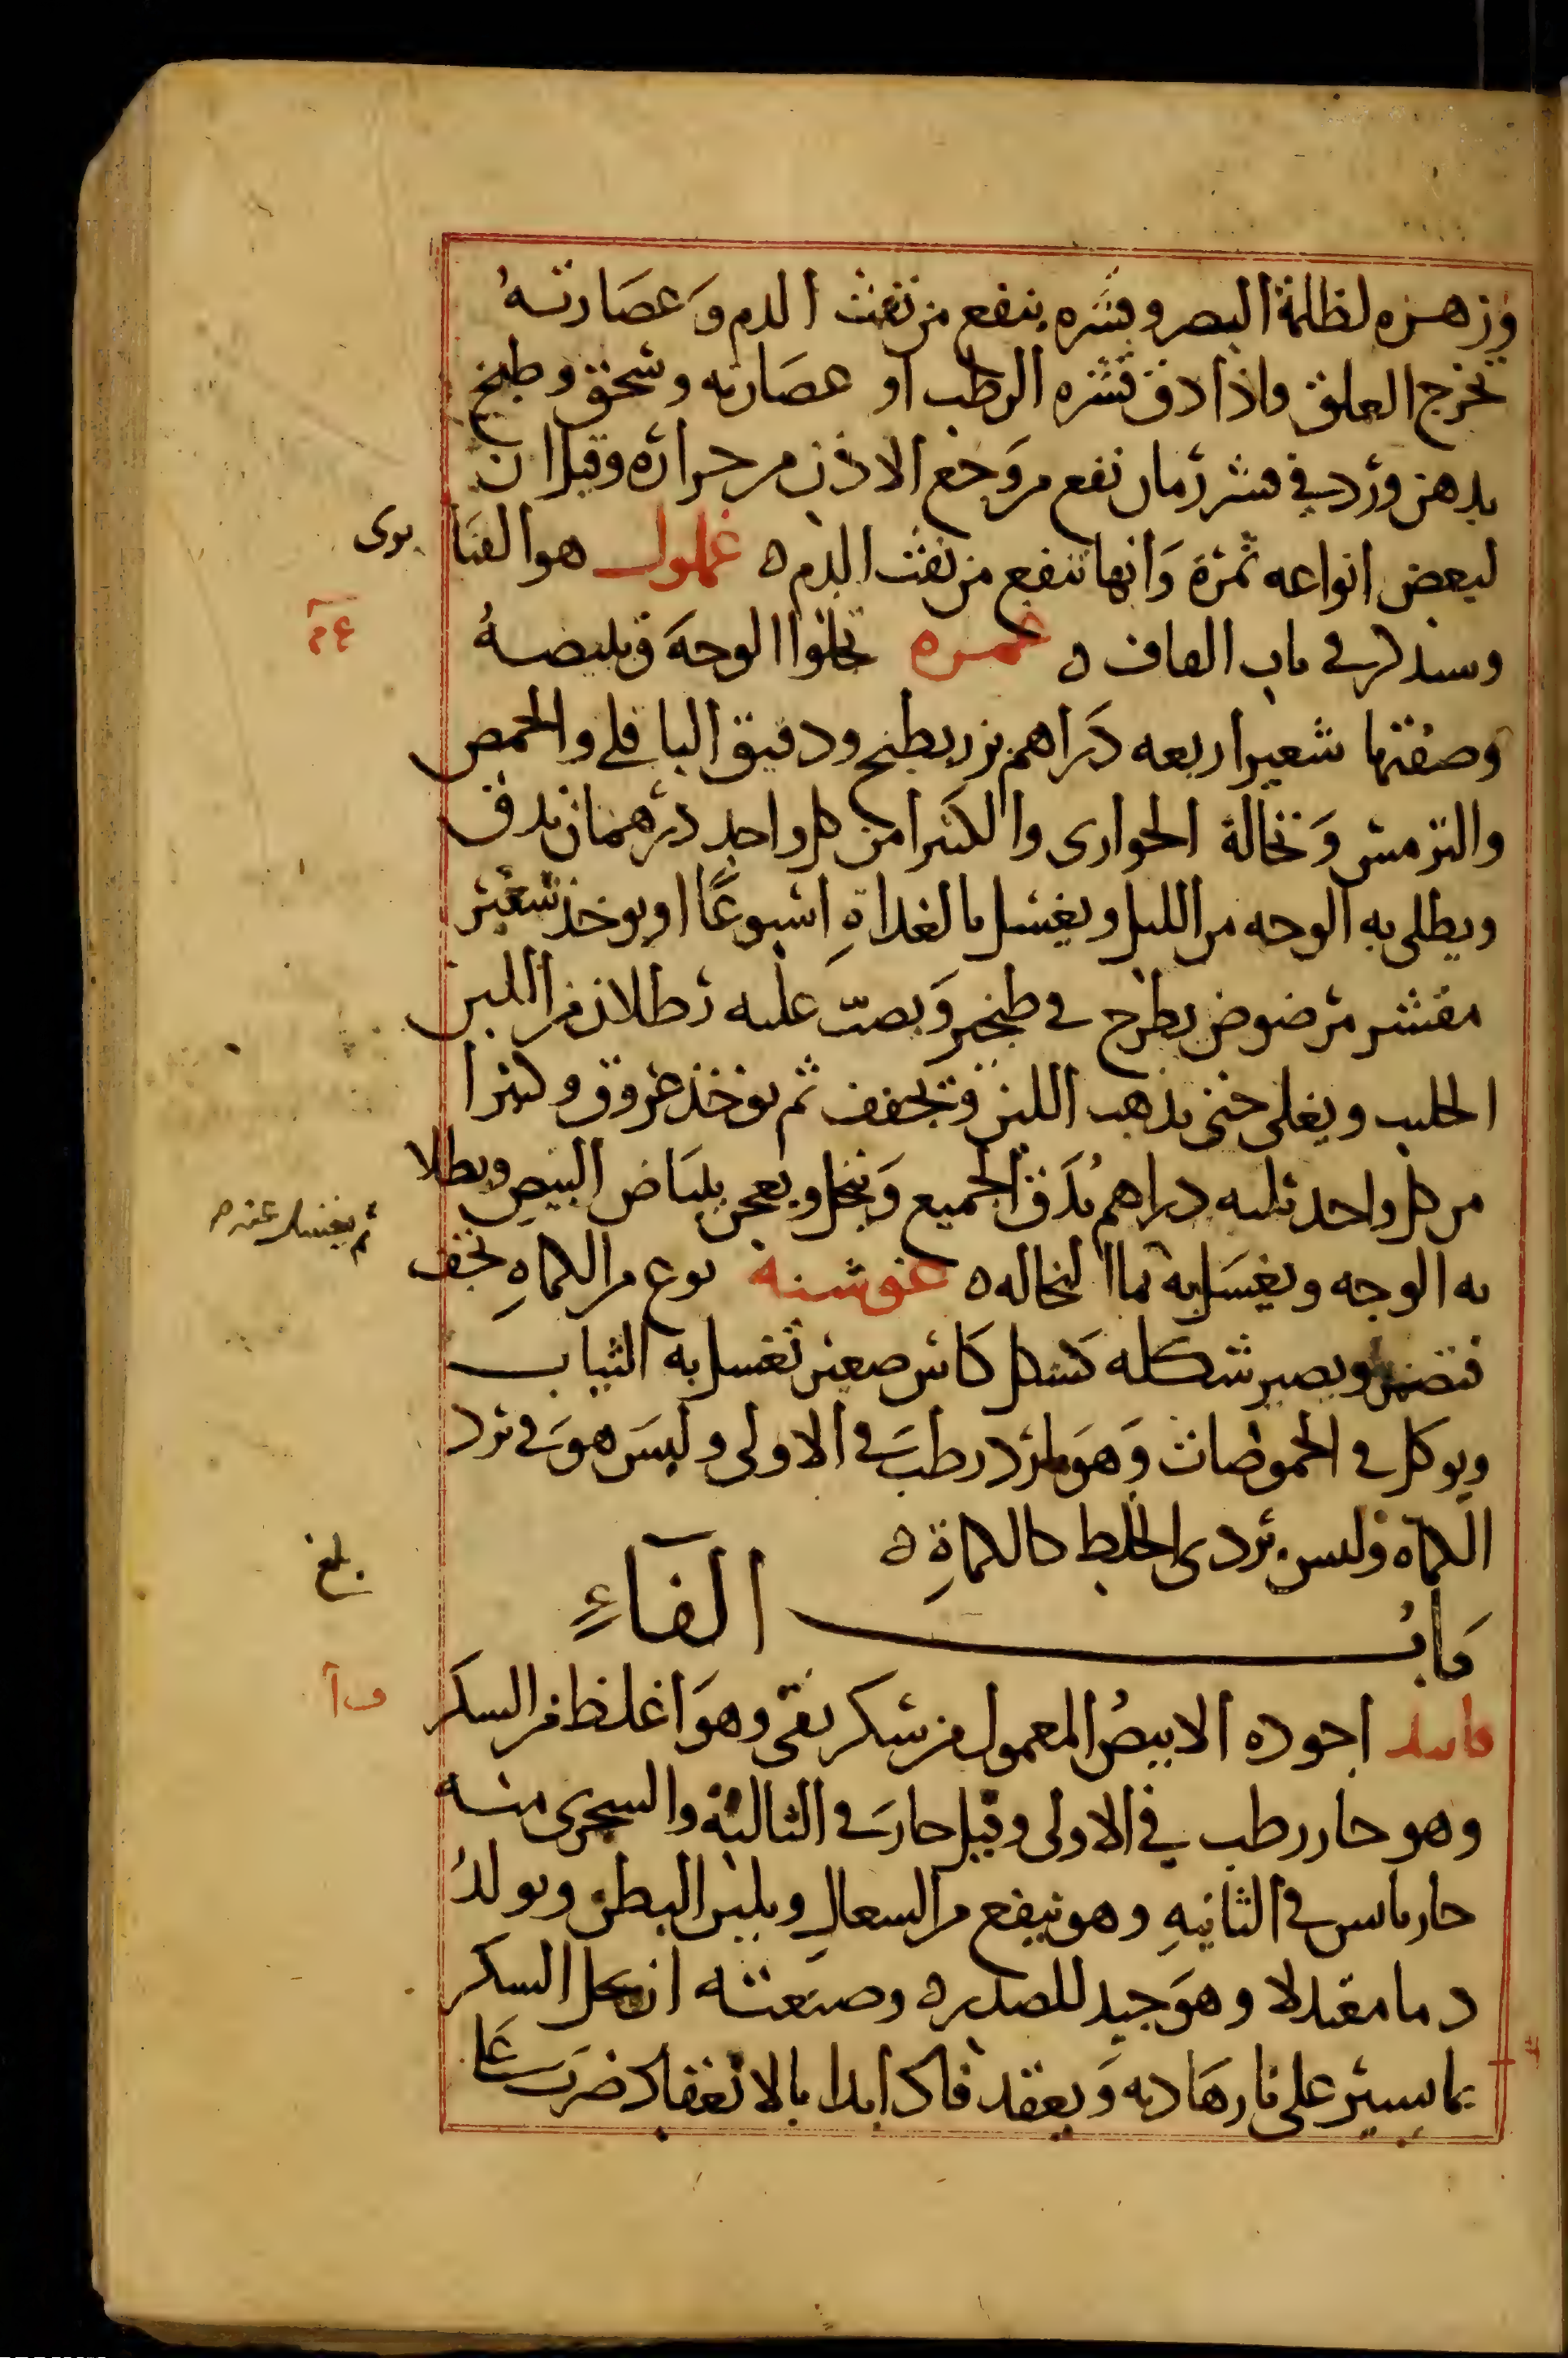 وزهره لظلمة البصر وقشره ينفع من نفث الدم وعصارته
تخرج العلق واذا دق قشره الرطب او عصارته وسحق وطبخ
بدهن ورد في قشر رمان نفع من وجع الاذن من حرارة وقيل ان
لبعض انواعه ثمرة وانها تنفع من نفث الدم ه غملول هو القنابرى
وسنذكر في باب القاف ه غمره تجلوا الوجه
غ م
وصفتها شعير اربعه دراهم بزر بطيخ ودقيق الباقلي والحمص
والترمس ونخالة الحوارى والكثيرا من كل واحد درهمان يدق
ويطلى به الوجه من الليل ويغسل بالغداة اسبوعا او يوخذ شعير
مقشر مرضوض يطرح في طنجير ويصب عليه رطلان من اللبن
الحليب ويغلى حتى يذهب اللبن وتجفف ثم يوخذ عروق وكثيرا
من كل واحد ثلثه دراهم يدق الجميع وينخل ويعجن ببياض البيض ويطلا
به الوجه ويغسل به بما النخاله ه غوشنة نوع من الكماه تجف
ثم يغسل عنه
فتضمر ويصير شكله كشكل كاس صغير تغسل به الثياب
ويوكل في الحموضات وهو بارد رطب في الاولى وليس هو في برد
الكماه وليس بردى الخلط كالكماة ه
بلغ
باب الفاء
فانيد اجوده الابيض المعمول من سكر نقي وهو اغلظ من السكر
ف آ
وهو حار رطب في الاولى وقيل حار في الثالثة والسجزى منه
حار يابس في الثانيه وهو ينفع من السعال ويلين البطن ويولد
دما معتدلا وهو جيد للصدر ه وصنعته ان يحل السكر
بما يسير على نار هاديه ويعقد فاذا بدا بالانعقاد ضرب على